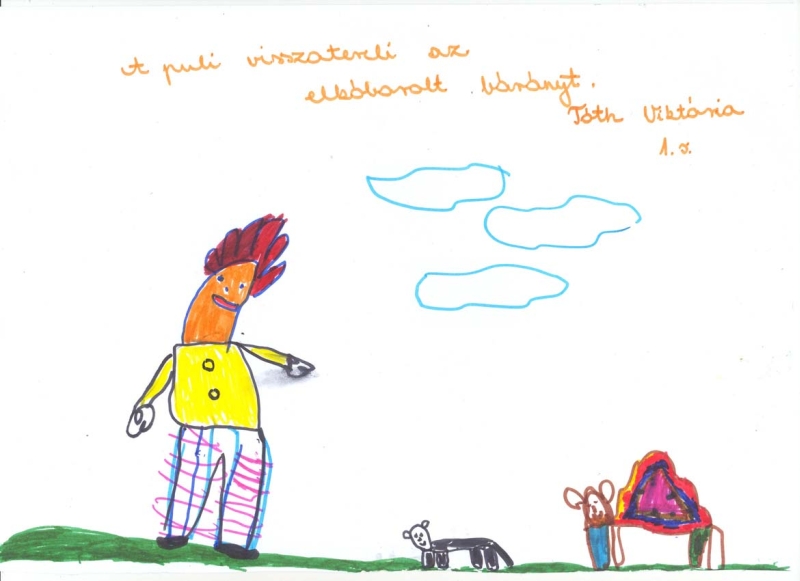 A puli visszatereli az
elkóborolt bárányt.
Tóth Viktória
1. s.